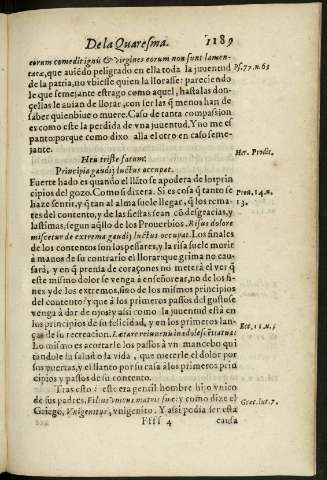 De la Quaresma. 1189
eorum comedit ignis & virgines eorum non sunt lamen-
tatæ, que auiẽdo peligrado en ella toda la juuentud
Ps. 77. n. 63
de la patria, no vbiesse quien la llorasse: pareciendo
le que semejante estrago como aquel, hasta las don-
çellas le auian de llorar, con ser las q̃ menos han de
saber quien biue o muere. Caso de tanta compassion
es como este la perdida de vna juuentud. Y no me es
panto: porque como dixo alla el otro en caso seme-
jante.
Heu triste fatum!
Her. Prodit.
Principia gaudij luctus occupat.
Fuerte hado es quando el llãto se apodera de los prin
cipios del gozo. Como si dixera. Si es cosa q̃ tanto se
haze sentir, y q̃ tan al alma suele llegar, q̃ los rema-
Prou. 14. n.
13.
tes del contento, y de las fiestas sean cõ desgracias, y
lastimas, segun aq̃llo de los Prouerbios. Risus dolore
miscetur & extrema gaudij luctus occupat. Los finales
de los contentos son los pessares, y la risa suele morir
à manos de su contrario el llorar: que grima no cau-
sarà, y en q̃ prensa de coraçones no meterà el ver q̃
este mismo dolor se venga à enseñorear, no de los fi-
nes y de los extremos, sino de los mismos principios
del contento? y que à los primeros passos del gusto se
venga à dar de ojos? assi como la juuentud està en
los principios de su felicidad, y en los primeros lan-
ças de su recreacion. Lætare reiuuenis in adolescentia tua:
Ecc. 11. n. 9
Lo mismo es acortarle los passos à vn mancebo qui
tandole la salud o la vida, que meterle el dolor por
sus puertas, y el llanto por su casa à los primeros prin
cipios y passos de su contento.
Tras esto: este era gentil hombre hijo vnico
de sus padres, Filius vnicus matris suæ: y como dize el
Griego, Vnigenitus, vnigenito. Y assi podia ser esta
Græc. luc. 7.
Ffff 4 causa